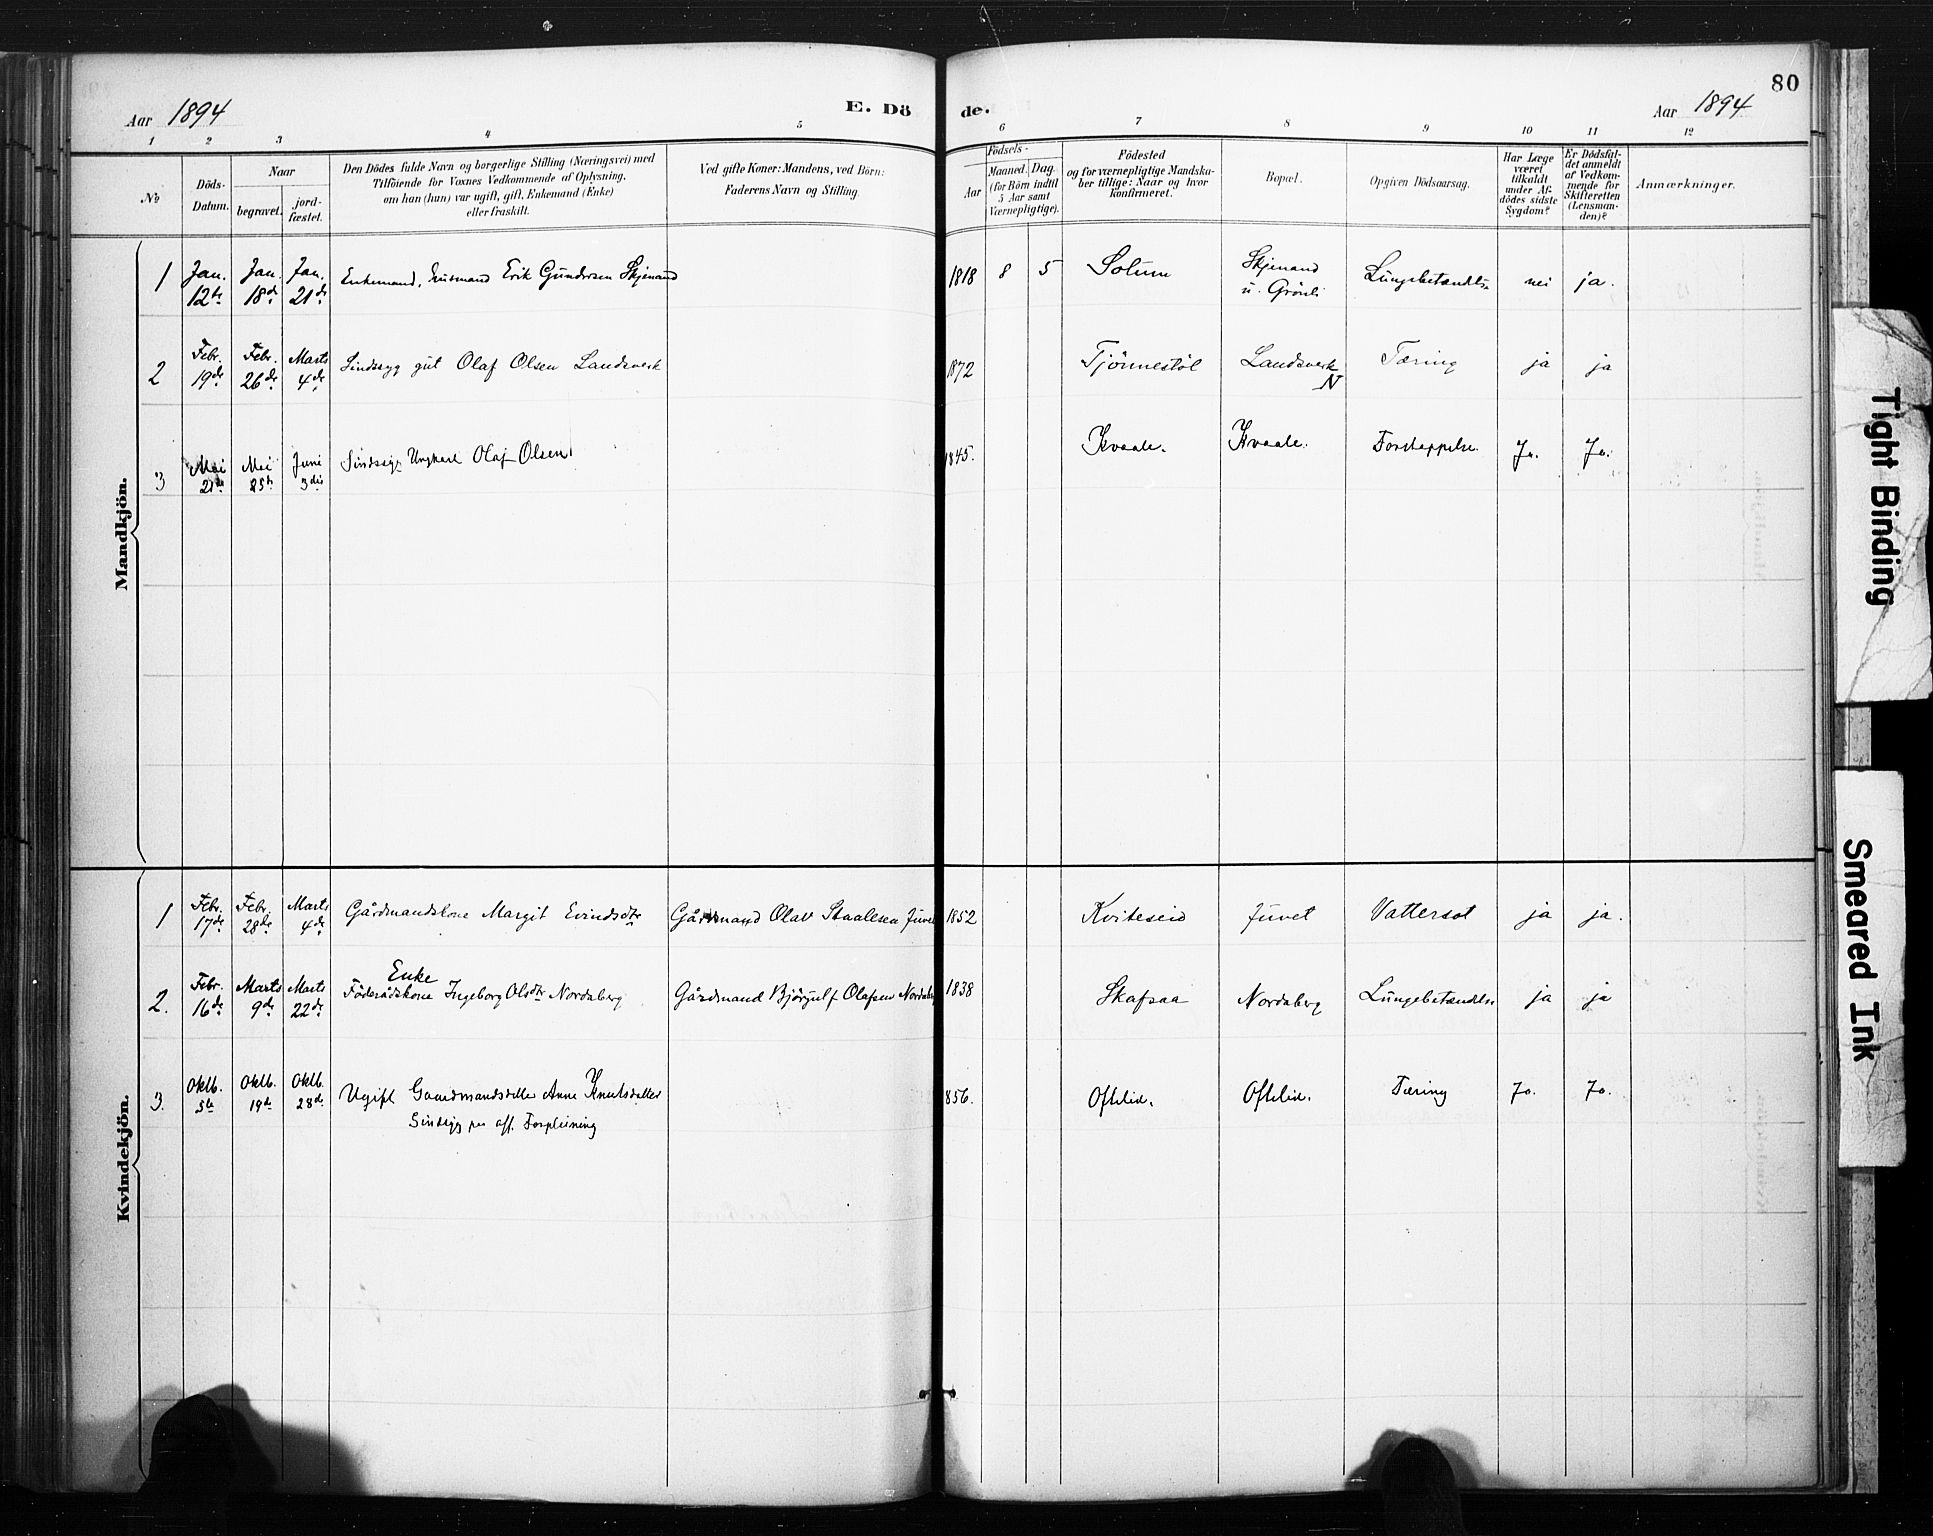 80
Aar 1894
E. Dö
de.
Aar 1894
1 2 3 4 5 6 7 8 9 10 11 12
No
Döds-
Datum.
Naar
begravet.
jord-
fæstet.
Den Dödes fulde Navn og borgerlige Stilling (Næringsvei) med
Tilföiende for Voxnes Vedkommende af Oplysning,
om han (hun) var ugift, gift, Enkemand (Enke)
eller fraskilt.
Ved gifte Koner: Mandens, ved Börn:
Faderens Navn og Stilling.
Födsels-
Aar
Maaned. Dag.
(for Börn indtil
5 Aar samt
Værnepligtige).
Födested
og for værnepligtige Mandska-
ber tillige: Naar og hvor
konfirmeret.
Bopæl.
Opgiven Dödsaarsag.
Har Læge
været
tilkaldt
under Af-
dödes sidste
Sygdom?
Er Dödsfal-
det anmeldt
af Vedkom-
mende for
Skifteretten
(Lensman-
den)?
Anmærkninger.
Mandkjön.
1 Jan. 12te Jan. 18de Jan. 21de Enkemand, Husmand Erik Gundersen Skjenand 1818 8 5 Solum Skjenand u. Grönli Lungebetændelse nei ja.
2 Febr. 19de Febr. 26de Marts 4de Sindssyg gut Olaf Olsen Landsverk 1872 Tjönnestöl Landsverk N Tæring ja ja
3 Mai 21de Mai 25de Juni 3die Sindssyg Ungkarl Olaf Olsen 1845. Kvaale. Kvaale. Forstoppelse. Ja. Ja.
Kvindekjön.
1 Febr. 17de Febr. 28de Marts 4de Gårdmandskone Margit Evindsdtr Gårdmand Olav Staalesen Juvet 1852 Kviteseid Juvet Vattersot ja ja.
2. Febr. 16de Marts 9de Marts 22de Enke Föderådskone Ingeborg Olsdtr Nordsberg Gårdmand Björgulf Olafsen Nordsberg 1838 Skafsaa Nordsberg Lungebetændelse ja ja
3. Oktb. 5te Oktb. 19de Oktb. 28de Ugift Gaardmandsdatter Anne Knutsdatter 856. Oftelid. Oftelid. Tæring Ja. Ja.
Sindsyg paa off. Forpleining
Tight Binding
Smeared Ink